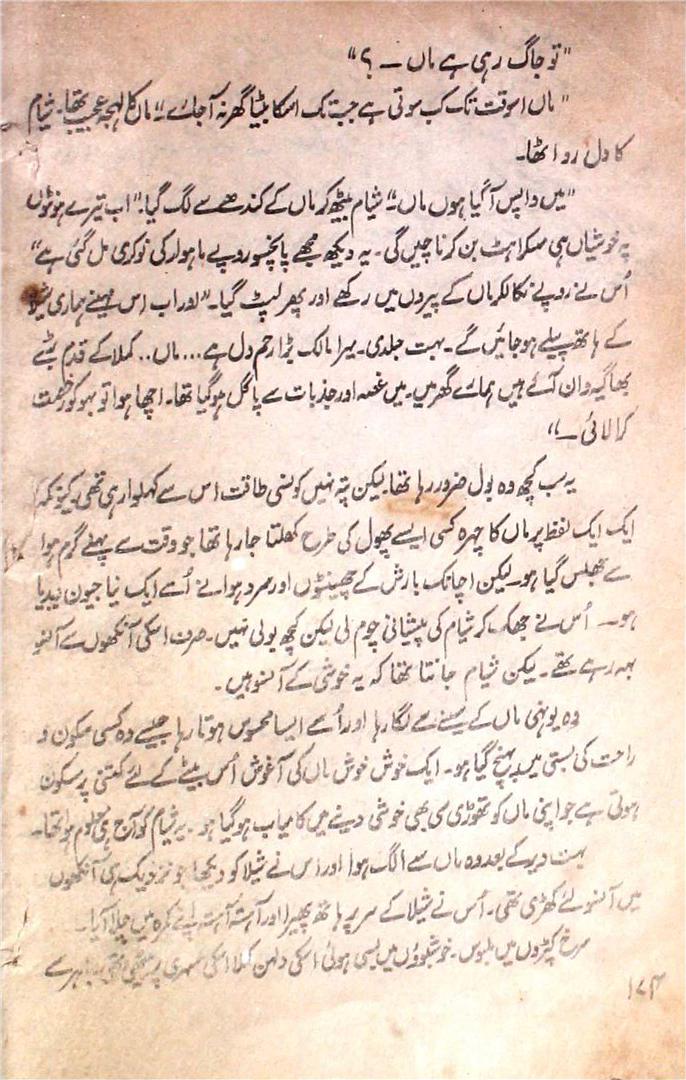 "تو جاگ رہی ہے ماں ــ ؟"
"ماں اسوقت تک کب سوتی ہے جب تک اسکا بیٹا گھر نہ آ جائے۔" ماں کا لہجہ عجیب تھا۔ شیام
کا دل رو اٹھا۔
"میں واپس آگیا ہوں ماں۔" شیام بیٹھ کر ماں کے کندھے سے لگ گیا۔ "اب تیرے ہونٹوں
پہ خوشیاں ہی مسکراہٹ بن کر ناچیں گی۔ یہ دیکھ مجھے پانچسو روپے ماہوار کی نوکری مل گئی ہے"
اُس نے روپے نکالکر ماں کے پیروں میں رکھے اور پھر لپٹ گیا۔ "اور اب اس مہینے ہماری شیلا
کے ہاتھ پیلے ہو جائیں گے۔ بہت جلدی۔ میرا مالک بڑا رحم دل ہے... ماں.. کملا کے قدم بڑے
بھاگیہ وان آئے ہیں ہمارے گھر میں۔ میں غصہ اور جذبات سے پاگل ہو گیا تھا۔ اچھا ہوا تو بہو کو رخصت
کرا لائی ــ"
یہ سب کچھ وہ بول ضرور رہا تھا۔ لیکن پتہ نہیں کونسی طاقت اس سے کہلوا رہی تھی۔ کیونکہ
ایک ایک لفظ پر ماں کا چہرہ کسی ایسے پھول کی طرح کھلتا جا رہا تھا جو وقت سے پہلے گرم ہوا
سے جھلس گیا ہو۔ لیکن اچانک بارش کے چھینٹوں اور سرد ہوا نے اُسے ایک نیا جیون دیدیا
ہو ــ اُس نے جھک کر شیام کی پیشانی چوم لی لیکن کچھ بولی نہیں۔ صرف اسکی آنکھوں سے آنسو
بہہ رہے تھے۔ لیکن شیام جانتا تھا کہ یہ خوشی کے آنسو ہیں۔
وہ یونہی ماں کے سینے سے لگا رہا اور اُسے ایسا محسوس ہوتا رہا جیسے وہ کسی سکون و
راحت کی بستی میں پہنچ گیا ہو۔ ایک خوش خوش ماں کی آغوش اُس بیٹے کے لئے کتنی پر سکون
ہوتی ہے جو اپنی ماں کو تھوڑی سی بھی خوشی دینے میں کامیاب ہو گیا ہو۔ یہ شیام کو آج ہی معلوم ہوا تھا۔
بہت دیر کے بعد وہ ماں سے الگ ہوا اور اس نے شیلا کو دیکھا جو نزدیک ہی آنکھوں
میں آنسو لئے کھڑی تھی۔ اُس نے شیلا کے سر پر ہاتھ پھیرا اور آہستہ آہستہ اپنے کمرہ میں چلا آیا۔
سرخ کپڑوں میں ملبوس۔ خوشبوؤں میں بسی ہوئی اسکی دلہن کملا اسکی مسہری پر بیٹھی تھی۔
۱۷۴